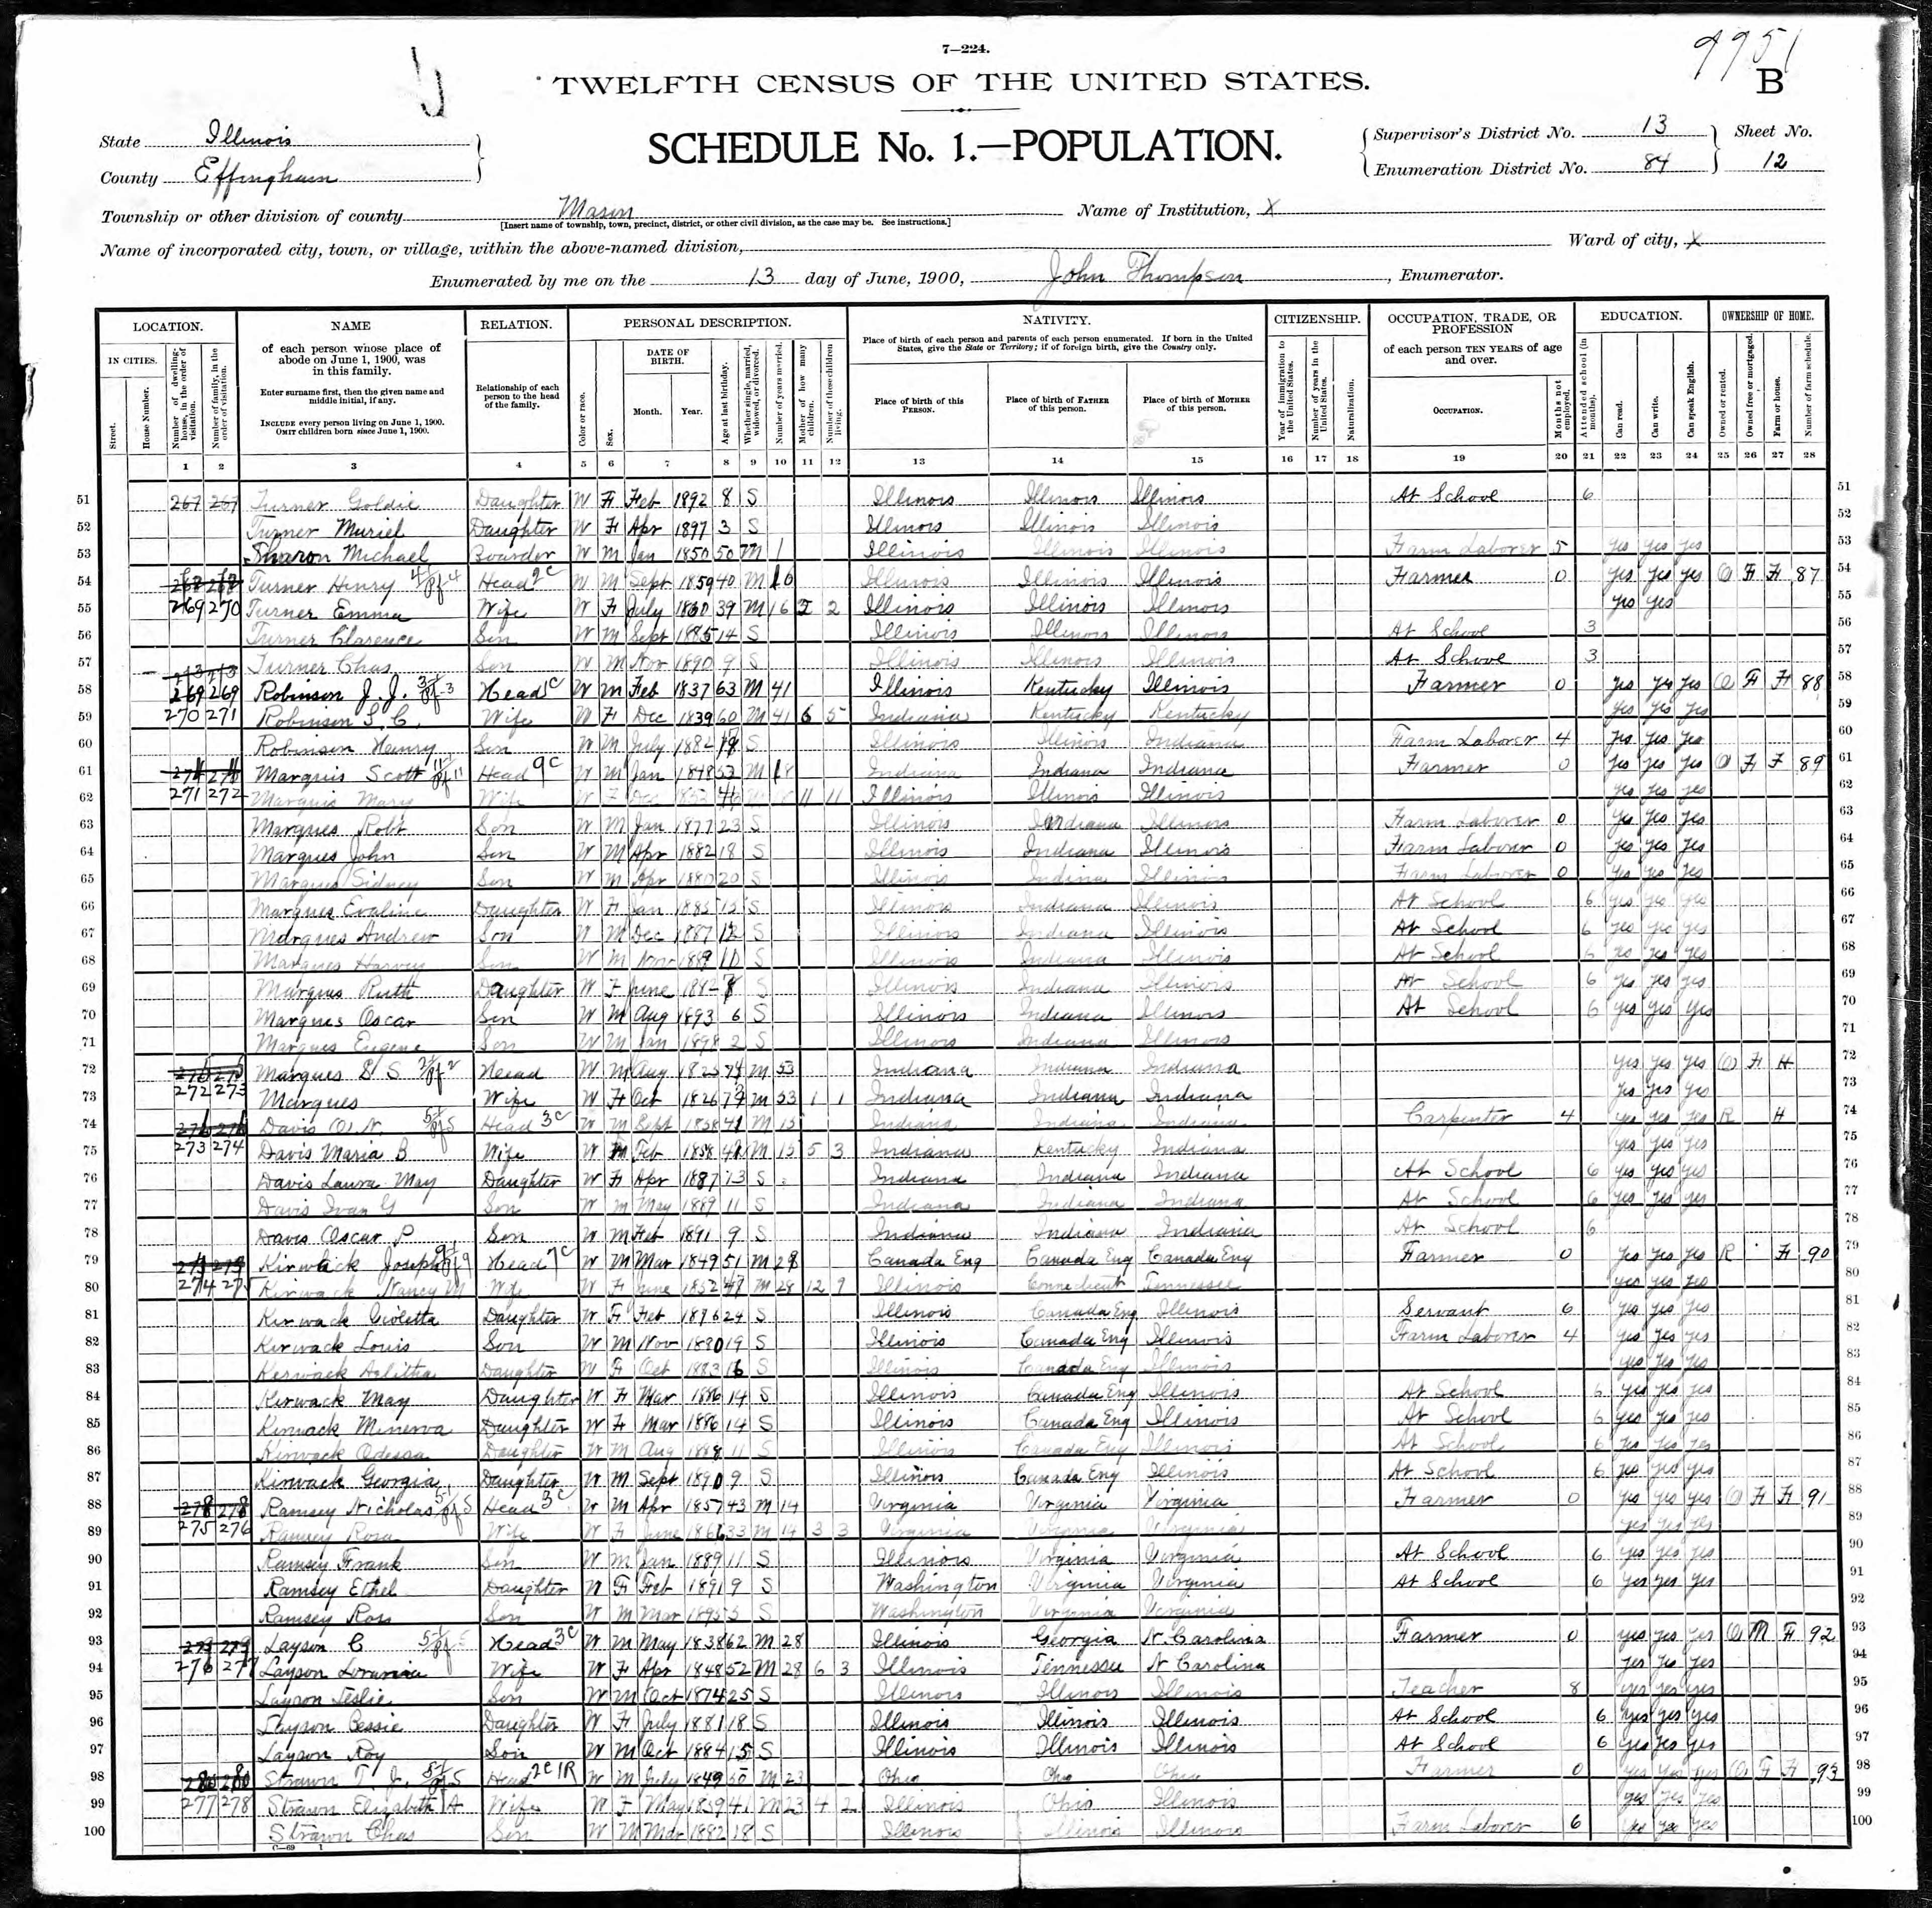 7—224.
9951
TWELFTH CENSUS OF THE UNITED STATES.
B
State Illinois
County Effingham
SCHEDULE No. 1.—POPULATION.
Supervisor's District No. 13 Sheet No.
Enumeration District No. 84 12
Township or other division of county Mason Name of Institution, X
[Insert name of township, town, precinct, district, or other civil division, as the case may be. See instructions.]
Name of incorporated city, town, or village, within the above-named division, Ward of city, X
Enumerated by me on the 13 day of June, 1900, John Thompson, Enumerator.
LOCATION. NAME RELATION. PERSONAL DESCRIPTION. NATIVITY. CITIZENSHIP. OCCUPATION, TRADE, OR PROFESSION EDUCATION. OWNERSHIP OF HOME.
IN CITIES. Street. House Number. Number of dwelling-house, in the order of visitation. Number of family, in the order of visitation.
of each person whose place of abode on June 1, 1900, was in this family.
Enter surname first, then the given name and middle initial, if any.
INCLUDE every person living on June 1, 1900. OMIT children born since June 1, 1900.
Relationship of each person to the head of the family.
Color or race. Sex. DATE OF BIRTH. Month. Year. Age at last birthday. Whether single, married, widowed, or divorced. Number of years married. Mother of how many children. Number of these children living.
Place of birth of each person and parents of each person enumerated. If born in the United States, give the State or Territory; if of foreign birth, give the Country only.
Place of birth of this PERSON. Place of birth of FATHER of this person. Place of birth of MOTHER of this person.
Year of immigration to the United States. Number of years in the United States. Naturalization.
of each person TEN YEARS of age and over.
OCCUPATION. Months not employed.
Attended school (in months). Can read. Can write. Can speak English.
Owned or rented. Owned free or mortgaged. Farm or house. Number of farm schedule.
1 2 3 4 5 6 7 8 9 10 11 12 13 14 15 16 17 18 19 20 21 22 23 24 25 26 27 28
51 267 267 Turner Goldie Daughter W F Feb 1892 8 S Illinois Illinois Illinois At School 6 51
52 Turner Muriel Daughter W F Apr 1897 3 S Illinois Illinois Illinois 52
53 Sharon Michael Boarder W M Jan 1850 50 M Illinois Illinois Illinois Farm Laborer 5 yes yes yes 53
54 Turner Henry Head W M Sept 1859 40 M 16 Illinois Illinois Illinois Farmer 0 yes yes yes O F F 87 54
55 269 270 Turner Emma Wife W F July 1860 39 M 16 2 2 Illinois Illinois Illinois yes yes 55
56 Turner Clarence Son W M Sept 1885 14 S Illinois Illinois Illinois At School 3 56
57 Turner Chas Son W M Nov 1890 9 S Illinois Illinois Illinois At School 3 57
58 269 269 Robinson J. J. Head W M Feb 1837 63 M 41 Illinois Kentucky Illinois Farmer 0 yes yes yes O F F 88 58
59 270 271 Robinson S. C. Wife W F Dec 1839 60 M 41 6 5 Indiana Kentucky Kentucky yes yes yes 59
60 Robinson Henry Son W M July 1882 S Illinois Illinois Indiana Farm Laborer 4 yes yes yes 60
61 Marquis Scott Head W M Jan M Indiana Indiana Indiana Farmer 0 yes yes yes O F F 89 61
62 271 272 Marquis Mary Wife W F Dec 11 11 Illinois Illinois Illinois yes yes yes 62
63 Marques Robt Son W M Jan 1877 23 S Illinois Indiana Illinois Farm Laborer 0 yes yes yes 63
64 Marques John Son W M Apr 1882 18 S Illinois Indiana Illinois Farm Laborer 0 yes yes yes 64
65 Marques Sidney Son W M Apr 1880 20 S Illinois Indiana Illinois Farm Laborer 0 yes yes yes 65
66 Marques Evaline Daughter W F Jan 1885 15 S Illinois Indiana Illinois At School 6 yes yes yes 66
67 Marques Andrew Son W M Dec 1887 12 S Illinois Indiana Illinois At School 6 yes yes yes 67
68 Marques Harvey Son W M Nov 1889 S Illinois Indiana Illinois At School 6 yes yes yes 68
69 Marques Ruth Daughter W F June S Illinois Indiana Illinois At School 6 yes yes yes 69
70 Marques Oscar Son W M Aug 1893 6 S Illinois Indiana Illinois At School 6 yes yes yes 70
71 Marques Eugene Son W M Jan 1898 2 S Illinois Indiana Illinois 71
72 Marques S Head W M Aug M 53 Indiana Indiana Indiana yes yes yes O F H 72
73 272 273 Marques Wife W F Oct 1826 73 M 53 1 1 Indiana Indiana Indiana yes yes yes 73
74 Davis O. N. Head W M Sept 1858 41 M 15 Indiana Indiana Indiana Carpenter 4 yes yes yes R H 74
75 273 274 Davis Maria B Wife W Feb 1858 M 15 5 3 Indiana Kentucky Indiana yes yes yes 75
76 Davis Laura May Daughter W F Apr 1887 13 S Indiana Indiana Indiana At School 6 yes yes yes 76
77 Davis Ivan G Son W M May 1889 11 S Indiana Indiana Indiana At School 6 yes yes yes 77
78 Davis Oscar P Son W M Feb 1891 9 S Indiana Indiana Indiana At School 6 78
79 Kirwack Joseph Head W M Mar 1849 51 M 28 Canada Eng Canada Eng Canada Eng Farmer 0 yes yes yes R F 90 79
80 274 275 Kirwack Nancy M Wife W F June 1852 47 M 28 12 9 Illinois Connecticut Tennessee yes yes yes 80
81 Kirwack Violetta Daughter W F Feb 1876 24 S Illinois Canada Eng Illinois Servant 6 yes yes yes 81
82 Kirwack Louis Son W M Nov 1880 19 S Illinois Canada Eng Illinois Farm Laborer 4 yes yes yes 82
83 Kerwack Daughter W F Oct 1883 16 S Illinois Canada Eng Illinois yes yes yes 83
84 Kerwack May Daughter W F Mar 1886 14 S Illinois Canada Eng Illinois At School 6 yes yes yes 84
85 Kirwack Minerva Daughter W F Mar 1886 14 S Illinois Canada Eng Illinois At School 6 yes yes yes 85
86 Kirwack Odessa Daughter W M Aug 1888 11 S Illinois Canada Eng Illinois At School 6 yes yes yes 86
87 Kirwack Georgia Daughter W M Sept 1890 9 S Illinois Canada Eng Illinois At School 6 yes yes yes 87
88 278 278 Ramsey Nicholas Head W M Apr 1857 43 M 14 Virginia Virginia Virginia Farmer 0 yes yes yes O F F 91 88
89 275 276 Ramsey Rosa Wife W F June 33 M 14 3 3 Virginia Virginia Virginia yes yes yes 89
90 Ramsey Frank Son W M Jan 1889 11 S Illinois Virginia Virginia At School 6 yes yes yes 90
91 Ramsey Ethel Daughter W F Feb 1891 9 S Washington Virginia Virginia At School 6 yes yes yes 91
92 Ramsey Ross Son W M Mar 1895 5 S Washington Virginia Virginia 92
93 279 279 Layson C Head W M May 1838 62 M 28 Illinois Georgia N. Carolina Farmer 0 yes yes yes O M F 92 93
94 276 277 Layson Wife W F Apr 1848 52 M 28 6 3 Illinois Tennessee N Carolina yes yes yes 94
95 Layson Leslie Son W M Oct 1874 25 S Illinois Illinois Illinois Teacher 8 yes yes yes 95
96 Layson Bessie Daughter W F July 1881 18 S Illinois Illinois Illinois At School 6 yes yes yes 96
97 Layson Roy Son W M Oct 1884 15 S Illinois Illinois Illinois At School 6 yes yes yes 97
98 280 280 Strawn T. J. Head W M July 1849 50 M 23 Ohio Ohio Ohio Farmer 0 yes yes yes O F F 93 98
99 277 278 Strawn Elizabeth A Wife W F May 1859 41 M 23 4 2 Illinois Ohio Illinois yes yes yes 99
100 Strawn Chas Son W M Mar 1882 18 S Illinois Illinois Illinois Farm Laborer 6 yes yes yes 100